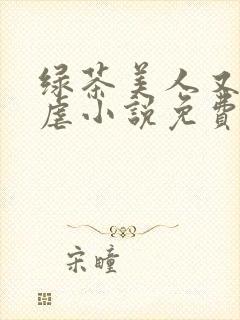 绿茶美人又
虐小说免费
宋瞳